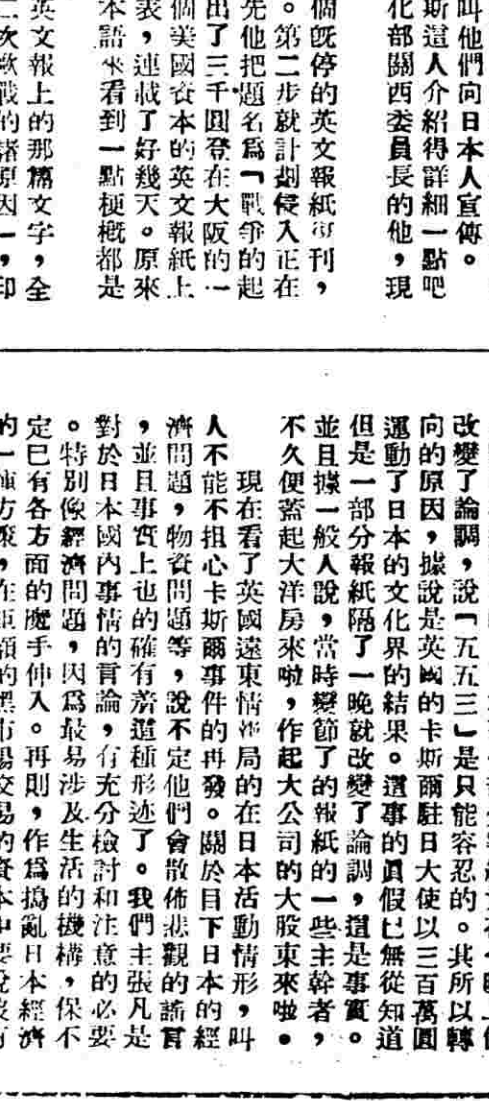 叫他們向日本人宣傳。
斯這人介紹得詳細一點吧
化部關西委員長的他,現
個旣停的英文報紙復刊,
。第二步就計劃侵入正在
先他把題名爲「戰爭的起
出了三千圓登在大阪的一
個美國資本的英文報紙上
表,連載了好幾天。原來
本語來看到一點梗概都是
英文報上的那篇文字,全
二次歐戰的諸原因」,印
改變了論調,說「五五三」是只能容忍的。其所以轉
向的原因,據說是英國的卡斯爾駐日大使以三百萬圓
運動了日本的文化界的結果。這事的眞假已無從知道
但是一部分報紙隔了一晚就改變了論調,這是事實。
並且據一般人說,當時變節了的報紙的一些主幹者,
不久便蓋起大洋房來啦,作起大公司的大股東來啦。
現在看了英國遠東情報局的在日本活動情形,叫
人不能不担心卡斯爾事件的再發。關於目下日本的經
濟問題,物資問題等,說不定他們會散佈悲觀的謠言
,並且事實上也的確有着這種形迹了。我們主張凡是
對於日本國內事情的言論,有充分檢討和注意的必要
。特別像經濟問題,因爲最易涉及生活的機構,保不
定已有各方面的魔手伸入。再則,作爲搗亂日本經濟
的一種方策,在巨額的黑市場交易的資本中要說沒有